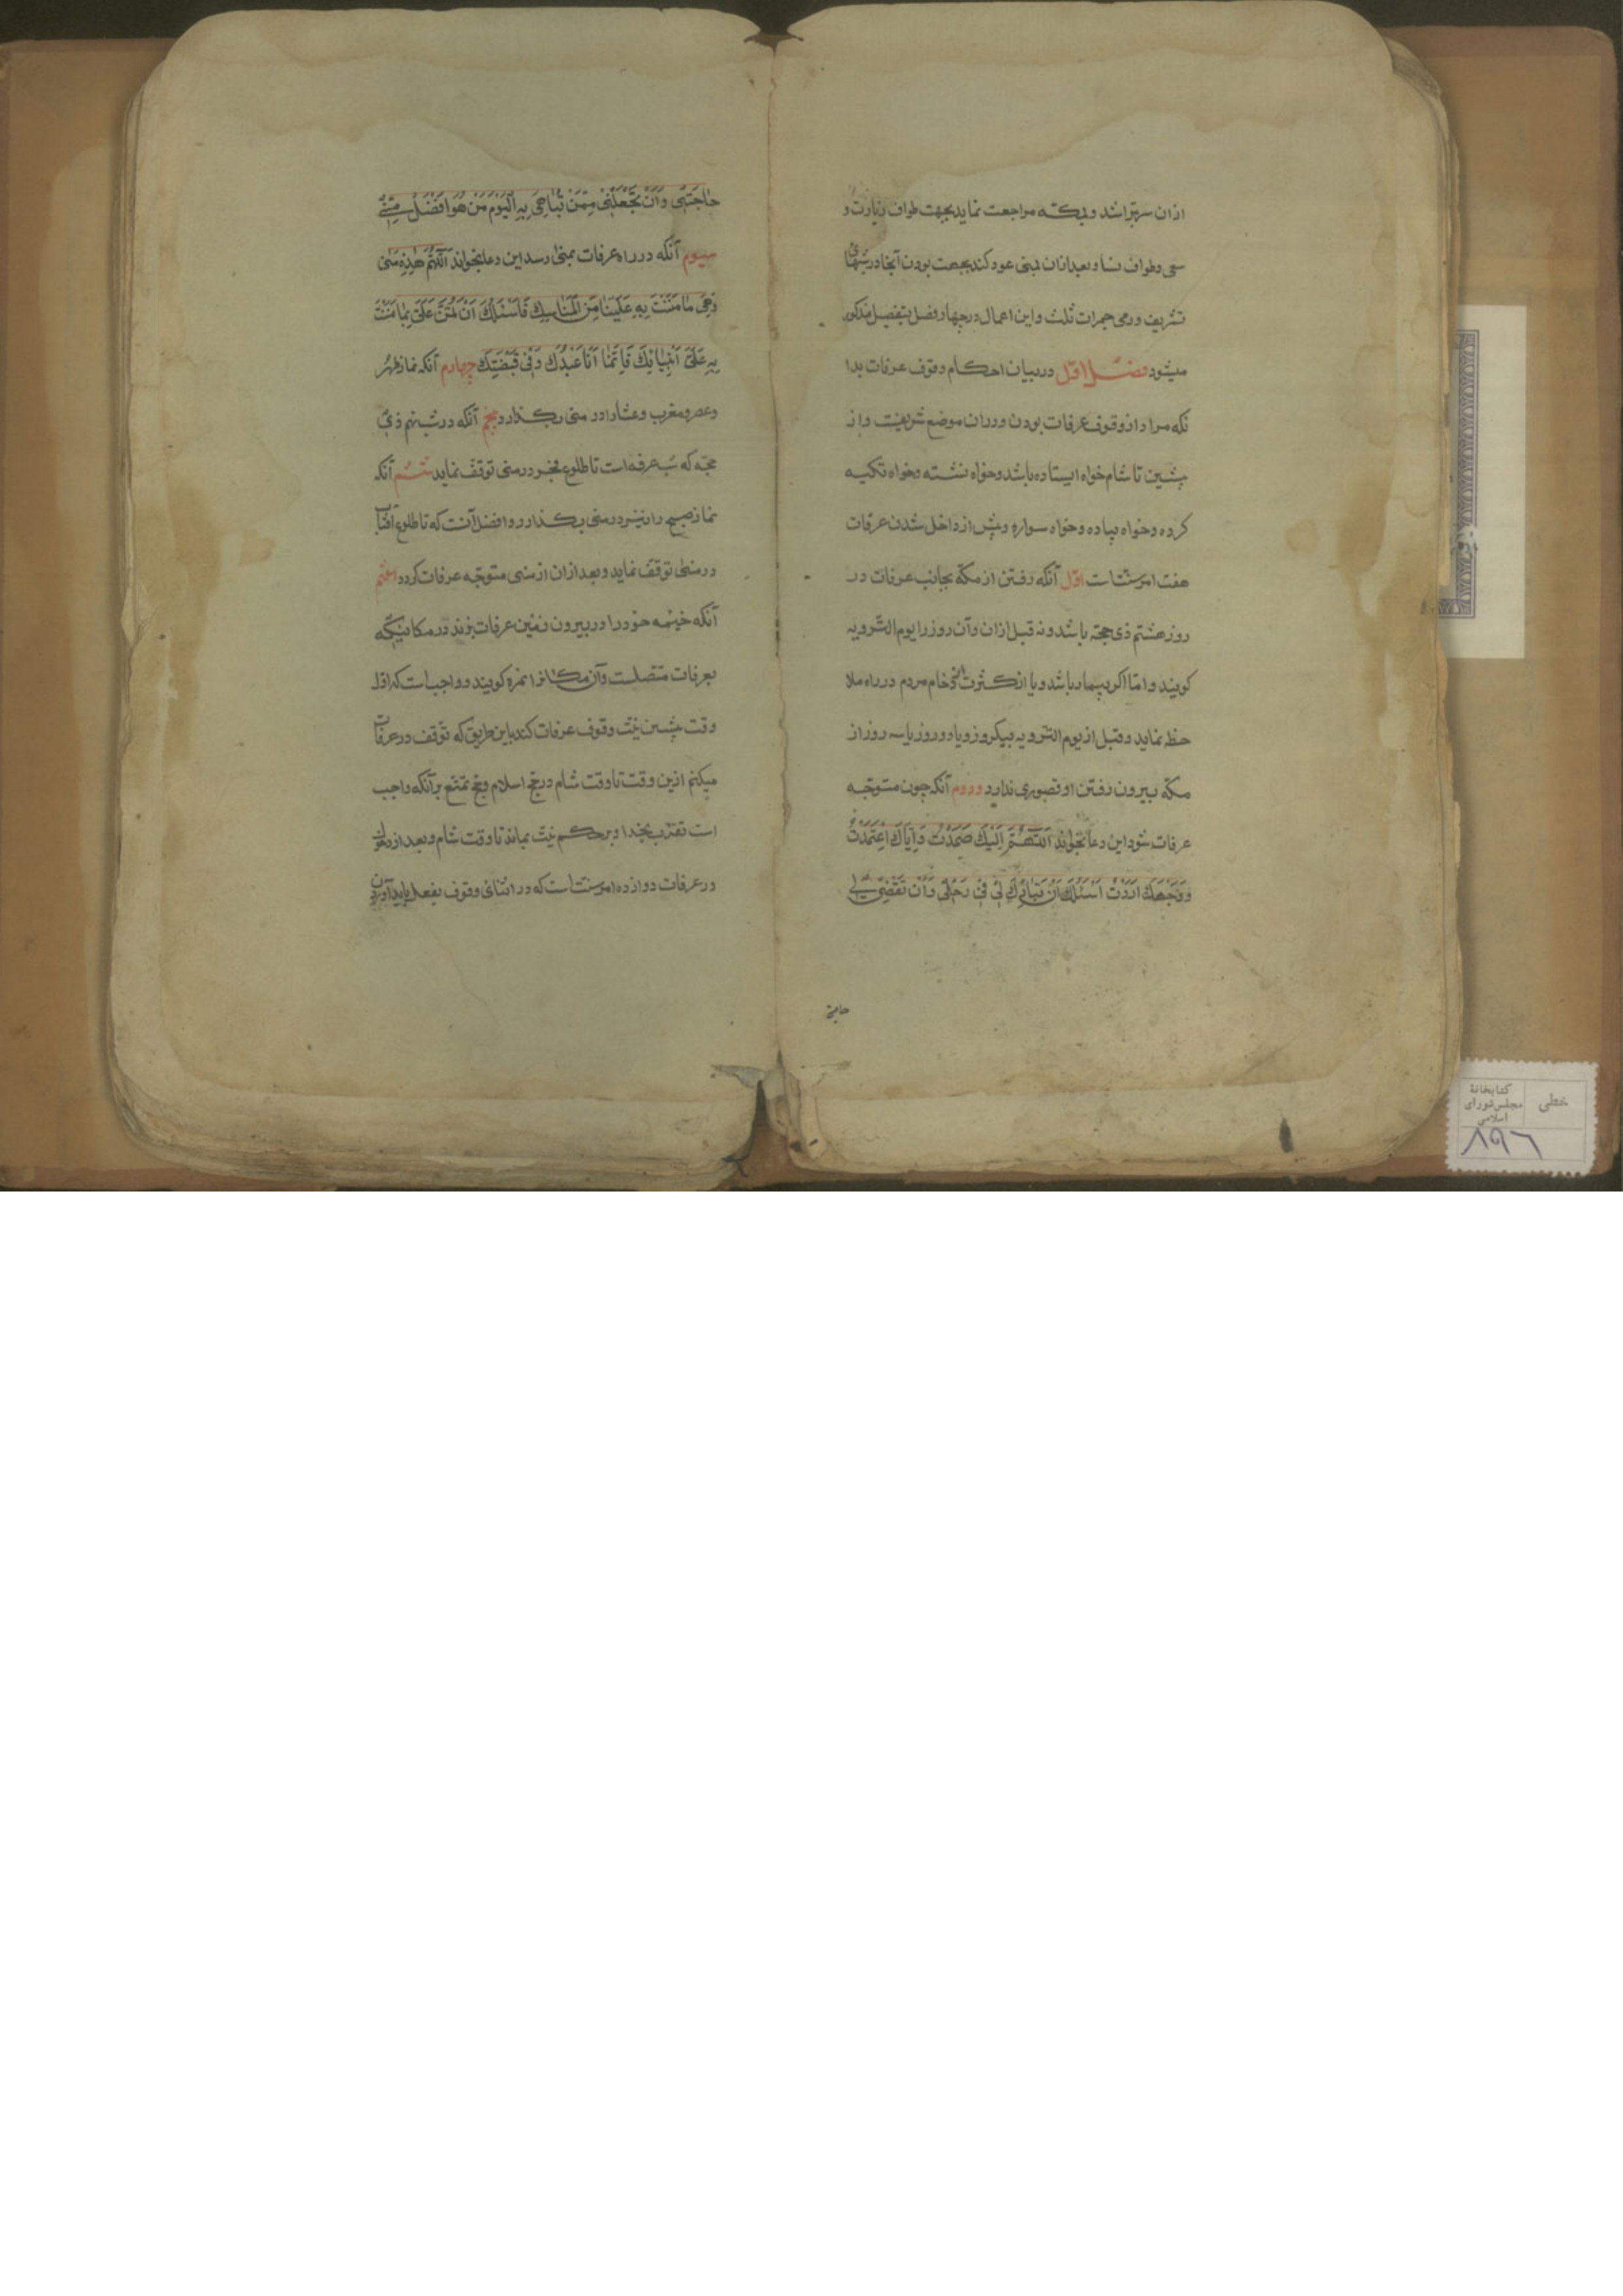 ازان سر بتراشد و بمکه مراجعت نماید بجهت طواف زیارت و
سعی و طواف نسا و بعد ازان بمنی عود کند بجهت بودن آنجا در شبهای
تشریق و رمی جمرات ثلث و این اعمال در چهار فصل بتفصیل مذکور
میشود فصل اول در بیان احکام وقوف عرفات بدا
نکه مراد از وقوف عرفات بودن و دران موضع شریفست و از
پیشین تا شام خواه ایستاده باشد و خواه نشسته و خواه تکیه
کرده و خواه پیاده و خواه سواره و پیش از داخل شدن عرفات
هفت امر سنت است اول آنکه رفتن از مکه بجانب عرفات در
روز هشتم ذی حجه باشد و نه قبل ازان و آن روز را یوم الترویه
کویند و اما اکر بیمار باشد و یا از کثرت ازدحام مردم در راه ملا
حظه نماید و قبل از یوم الترویه بیکروز و یا دو روز یا سه روز از
مکه بیرون رفتن او قصوری ندارد و دوم آنکه چون متوجه
عرفات شود این دعا بخواند اَللّهُمَّ اِلَيْكَ صَمَدْتُ وَاِيَّاكَ اعْتَمَدْتُ
وَوَجْهَكَ اَرَدْتُ اَسْئَلُكَ اَنْ تُبَارِكَ لِى فِى رَحْلِى وَاَنْ تَقْضِىَ لِى
حاجتی
حَاجَتِى وَاَنْ تَجْعَلَنِى مِمَّنْ تُبَاهِى بِهِ الْيَوْمَ مَنْ هُوَ اَفْضَلُ مِنِّى
سیوم آنکه در راه عرفات بمنی رسد این دعا بخواند اَللّهُمَّ هٰذِهِ مِنى
وَهِىَ مَا مَنَنْتَ بِهِ عَلَيْنَا مِنَ الْمَنَاسِكِ فَاَسْئَلُكَ اَنْ تَمُنَّ عَلَىَّ بِمَا مَنَنْتَ
بِهِ عَلَى اَنْبِيَائِكَ فَاِنَّمَا اَنَا عَبْدُكَ وَفِى قَبْضَتِكَ چهارم آنکه نماز ظهر
و عصر و مغرب و عشا را در منی بکذارد پنجم آنکه در شب نهم ذی
حجه که شب عرفه است تا طلوع فجر در منی توقف نماید ششم آنکه
نماز صبح را نیز در منی بکذارد و افضل آنست که تا طلوع آفتاب
در منی توقف نماید و بعد ازان از منی متوجه عرفات کردد هفتم
آنکه خیمه خود را در بیرون زمین عرفات بزند در مکانیکه
بعرفات متصلست و آن مکانرا نمره کویند و واجب است که اول
وقت پیشین نیت وقوف عرفات کند باین طریق که توقف در عرفات
میکنم ازین وقت تا وقت شام در حج اسلام و حج تمتع برآنکه واجب
است تقرب بخدا و بر حکم نیت بماند تا وقت شام و بعد از دخول
در عرفات دوازده امر سنت است که در اثنای وقوف بفعل باید آوردن
کتابخانهٔ
مجلس شورای
اسلامی
خطی
۸۹۶